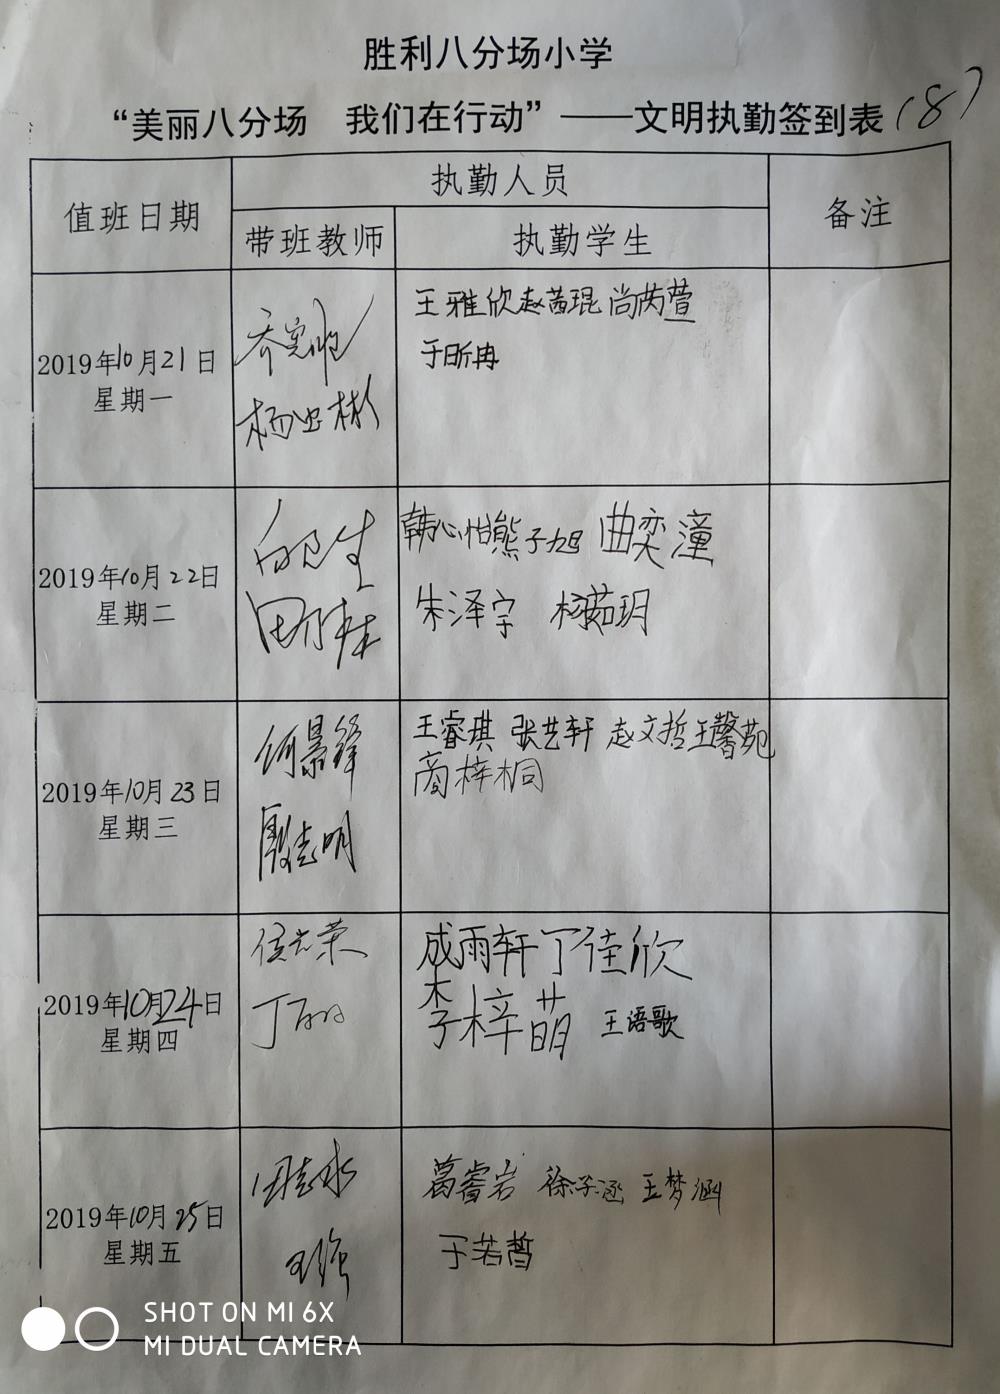 胜利八分场小学
“美丽八分场 我们在行动”——文明执勤签到表(8)
值班日期 执勤人员 备注
带班教师 执勤学生
2019年10月21日
星期一
杨忠彬
王雅欣 赵茜琨 尚芮萱
于昕冉
2019年10月22日
星期二
白卫生
韩心怡 熊子旭 曲奕潼
朱泽宇 杨茹玥
2019年10月23日
星期三
何景锋
殷志明
王睿琪 张艺轩 赵文哲 王馨苑
商梓桐
2019年10月24日
星期四
侯志荣
丁丽
成雨轩 丁佳欣
李梓萌 王语歌
2019年10月25日
星期五
田志永
王强
葛睿岩 徐子涵 王梦涵
于若晢
SHOT ON MI 6X
MI DUAL CAMERA